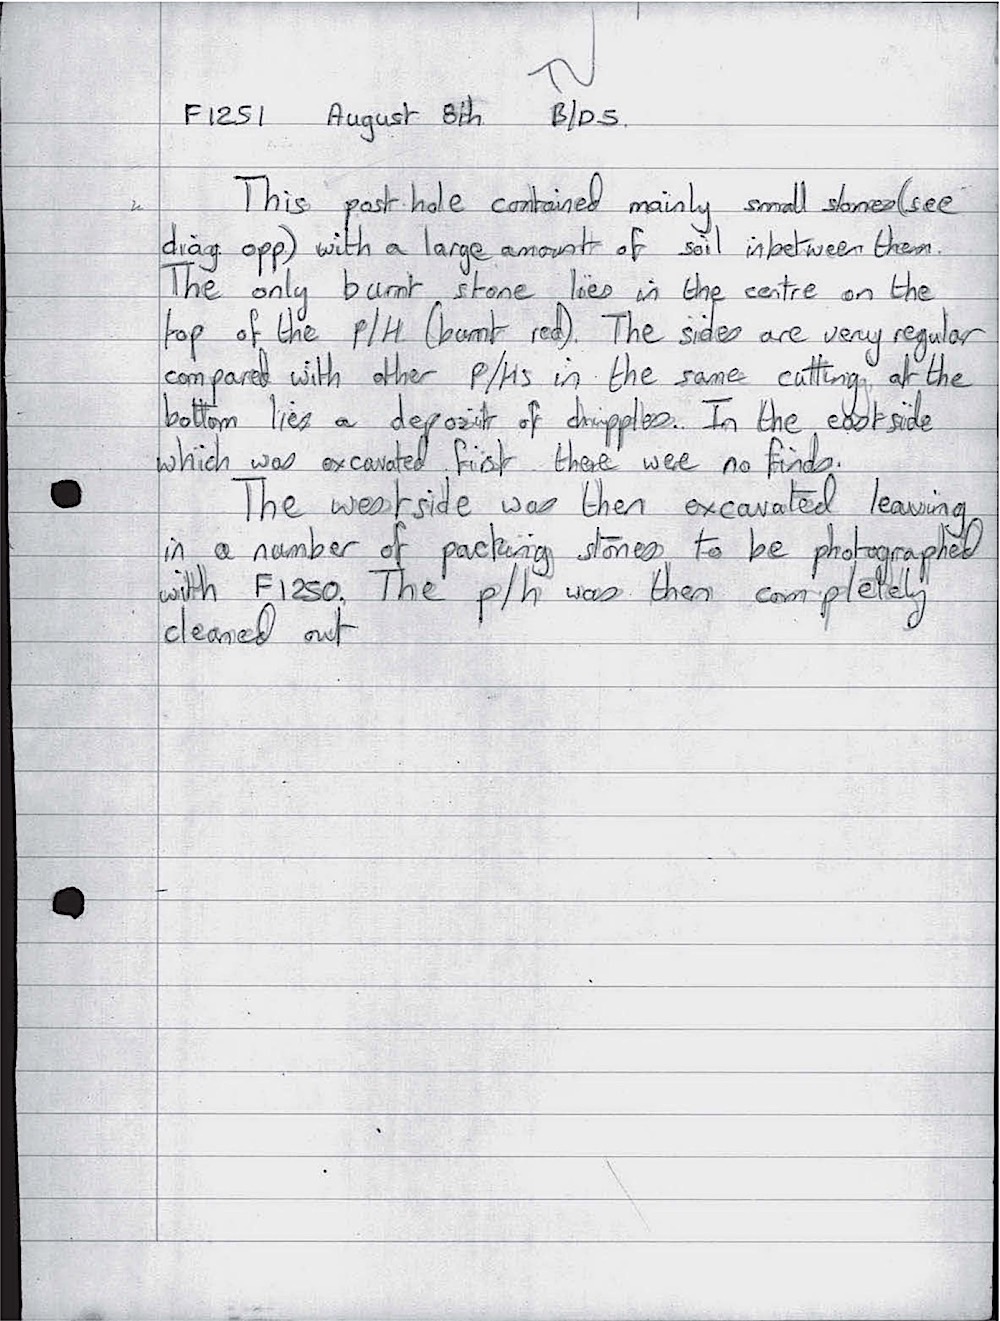 F1251 August 8th B/DS.
This post-hole contained mainly small stones (see
diag opp) with a large amount of soil inbetween them.
The only burnt stone lies in the centre on the
top of the P/H (burnt red). The sides are very regular
compared with other P/Hs in the same cutting, at the
bottom lies a deposit of chipples. In the east side
which was excavated first there wee no finds.
The west side was then excavated leaving
in a number of packing stones to be photographed
with F1250. The p/h was then completely
cleaned out